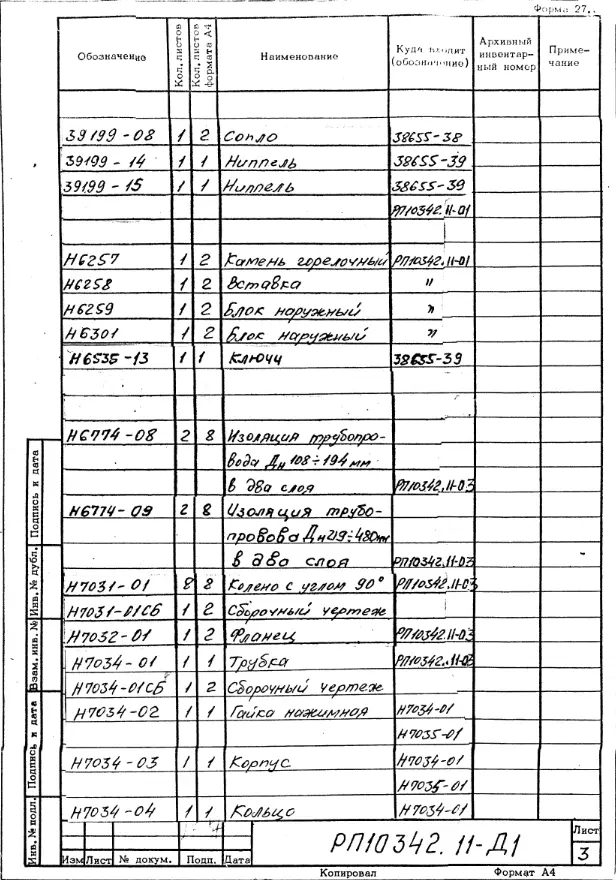 Форма 27
Обозначение Кол. листов Кол. листов формата А4 Наименование Куда входит (обозначение) Архивный инвентарный номер Примечание
39199-08 1 2 Сопло 38655-38
39199-14 1 1 Ниппель 38655-39
39199-15 1 1 Ниппель 38655-39
РП10342.11-01
Н6257 1 2 Камень горелочный РП10342.11-01
Н6258 1 2 Вставка "
Н6259 1 2 Блок наружный "
Н6301 1 2 Блок наружный "
Н6535-13 1 1 Ключи 38655-39
Н6774-08 2 8 Изоляция трубопро-
вода Дн 108÷194 мм
в два слоя РП10342.11-03
Н6774-09 2 8 Изоляция трубо-
провова Дн219÷480мм
в два слоя РП10342.11-03
Н7031-01 8 8 Колено с углом 90° РП10342.11-03
Н7031-01СБ 1 2 Сборочный чертеж
Н7032-01 1 2 Фланец РП10342.11-03
Н7034-01 1 1 Трубка РП10342.11-03
Н7034-01СБ 1 2 Сборочный чертеж
Н7034-02 1 1 Гайка нажимная Н7034-01
Н7035-01
Н7034-03 1 1 Корпус Н7034-01
Н7035-01
Н7034-04 1 1 Кольцо Н7034-01
Инв. № подл. Подпись и дата Взам. инв. № Инв. № дубл. Подпись и дата
Изм Лист № докум. Подп. Дата
РП10342.11-Д1
Лист
3
Копировал Формат А4